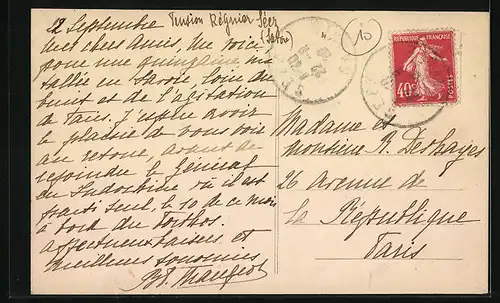 12 Septembre
Pension Régnier Séez
(Savoie)
Mes chers Amis, me voici
pour une quinzaine
en Savoie loin du
bruit et de l'agitation
de Paris. J'espère avoir
le plaisir de vous voir
au retour, avant de
rejoindre le Général
en Indochine où il est
parti seul, le 10 de ce mois
à bord du Porthos.
affectueux baisers et
meilleurs souvenirs
Bt. Mangeot
10
RÉPUBLIQUE FRANÇAISE
40c
POSTES
Madame et
Monsieur R. Deshayes
26 avenue de
la République
Paris